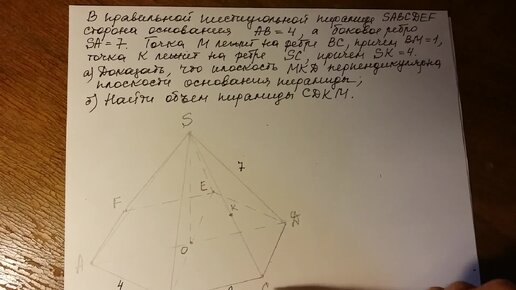 В правильной шестиугольной пирамиде SABCDEF
сторона основания AB = 4, а боковое ребро
SA = 7. Точка M лежит на ребре BC, причем BM = 1,
точка K лежит на ребре SC, причем SK = 4.
а) Доказать, что плоскость MKD перпендикулярна
плоскости основания пирамиды;
б) Найти объем пирамиды CDKM.
S
7
F
E
K
O
A
4
C